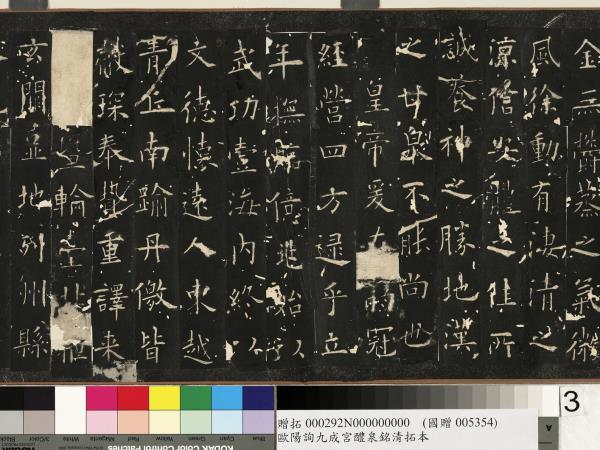 金無鬱蒸之氣微
風徐動有淒清之
涼信安體之佳所
誠養神之勝地漢
之甘泉不能尚也
皇帝爰在弱冠
經營四方逮乎立
年撫臨億兆始以
武功壹海內終以
文德懷遠人東越
青丘南踰丹徼皆
獻琛奉贄重譯來
暨輪臺北拒
玄闕並地列州縣
3
贈拓 000292N000000000 (國贈 005354)
歐陽詢九成宮醴泉銘清拓本
A
Black
3/Color
White
Magenta
Red
Yellow
Green
Cyan
Blue
KODAK Color Control Patches